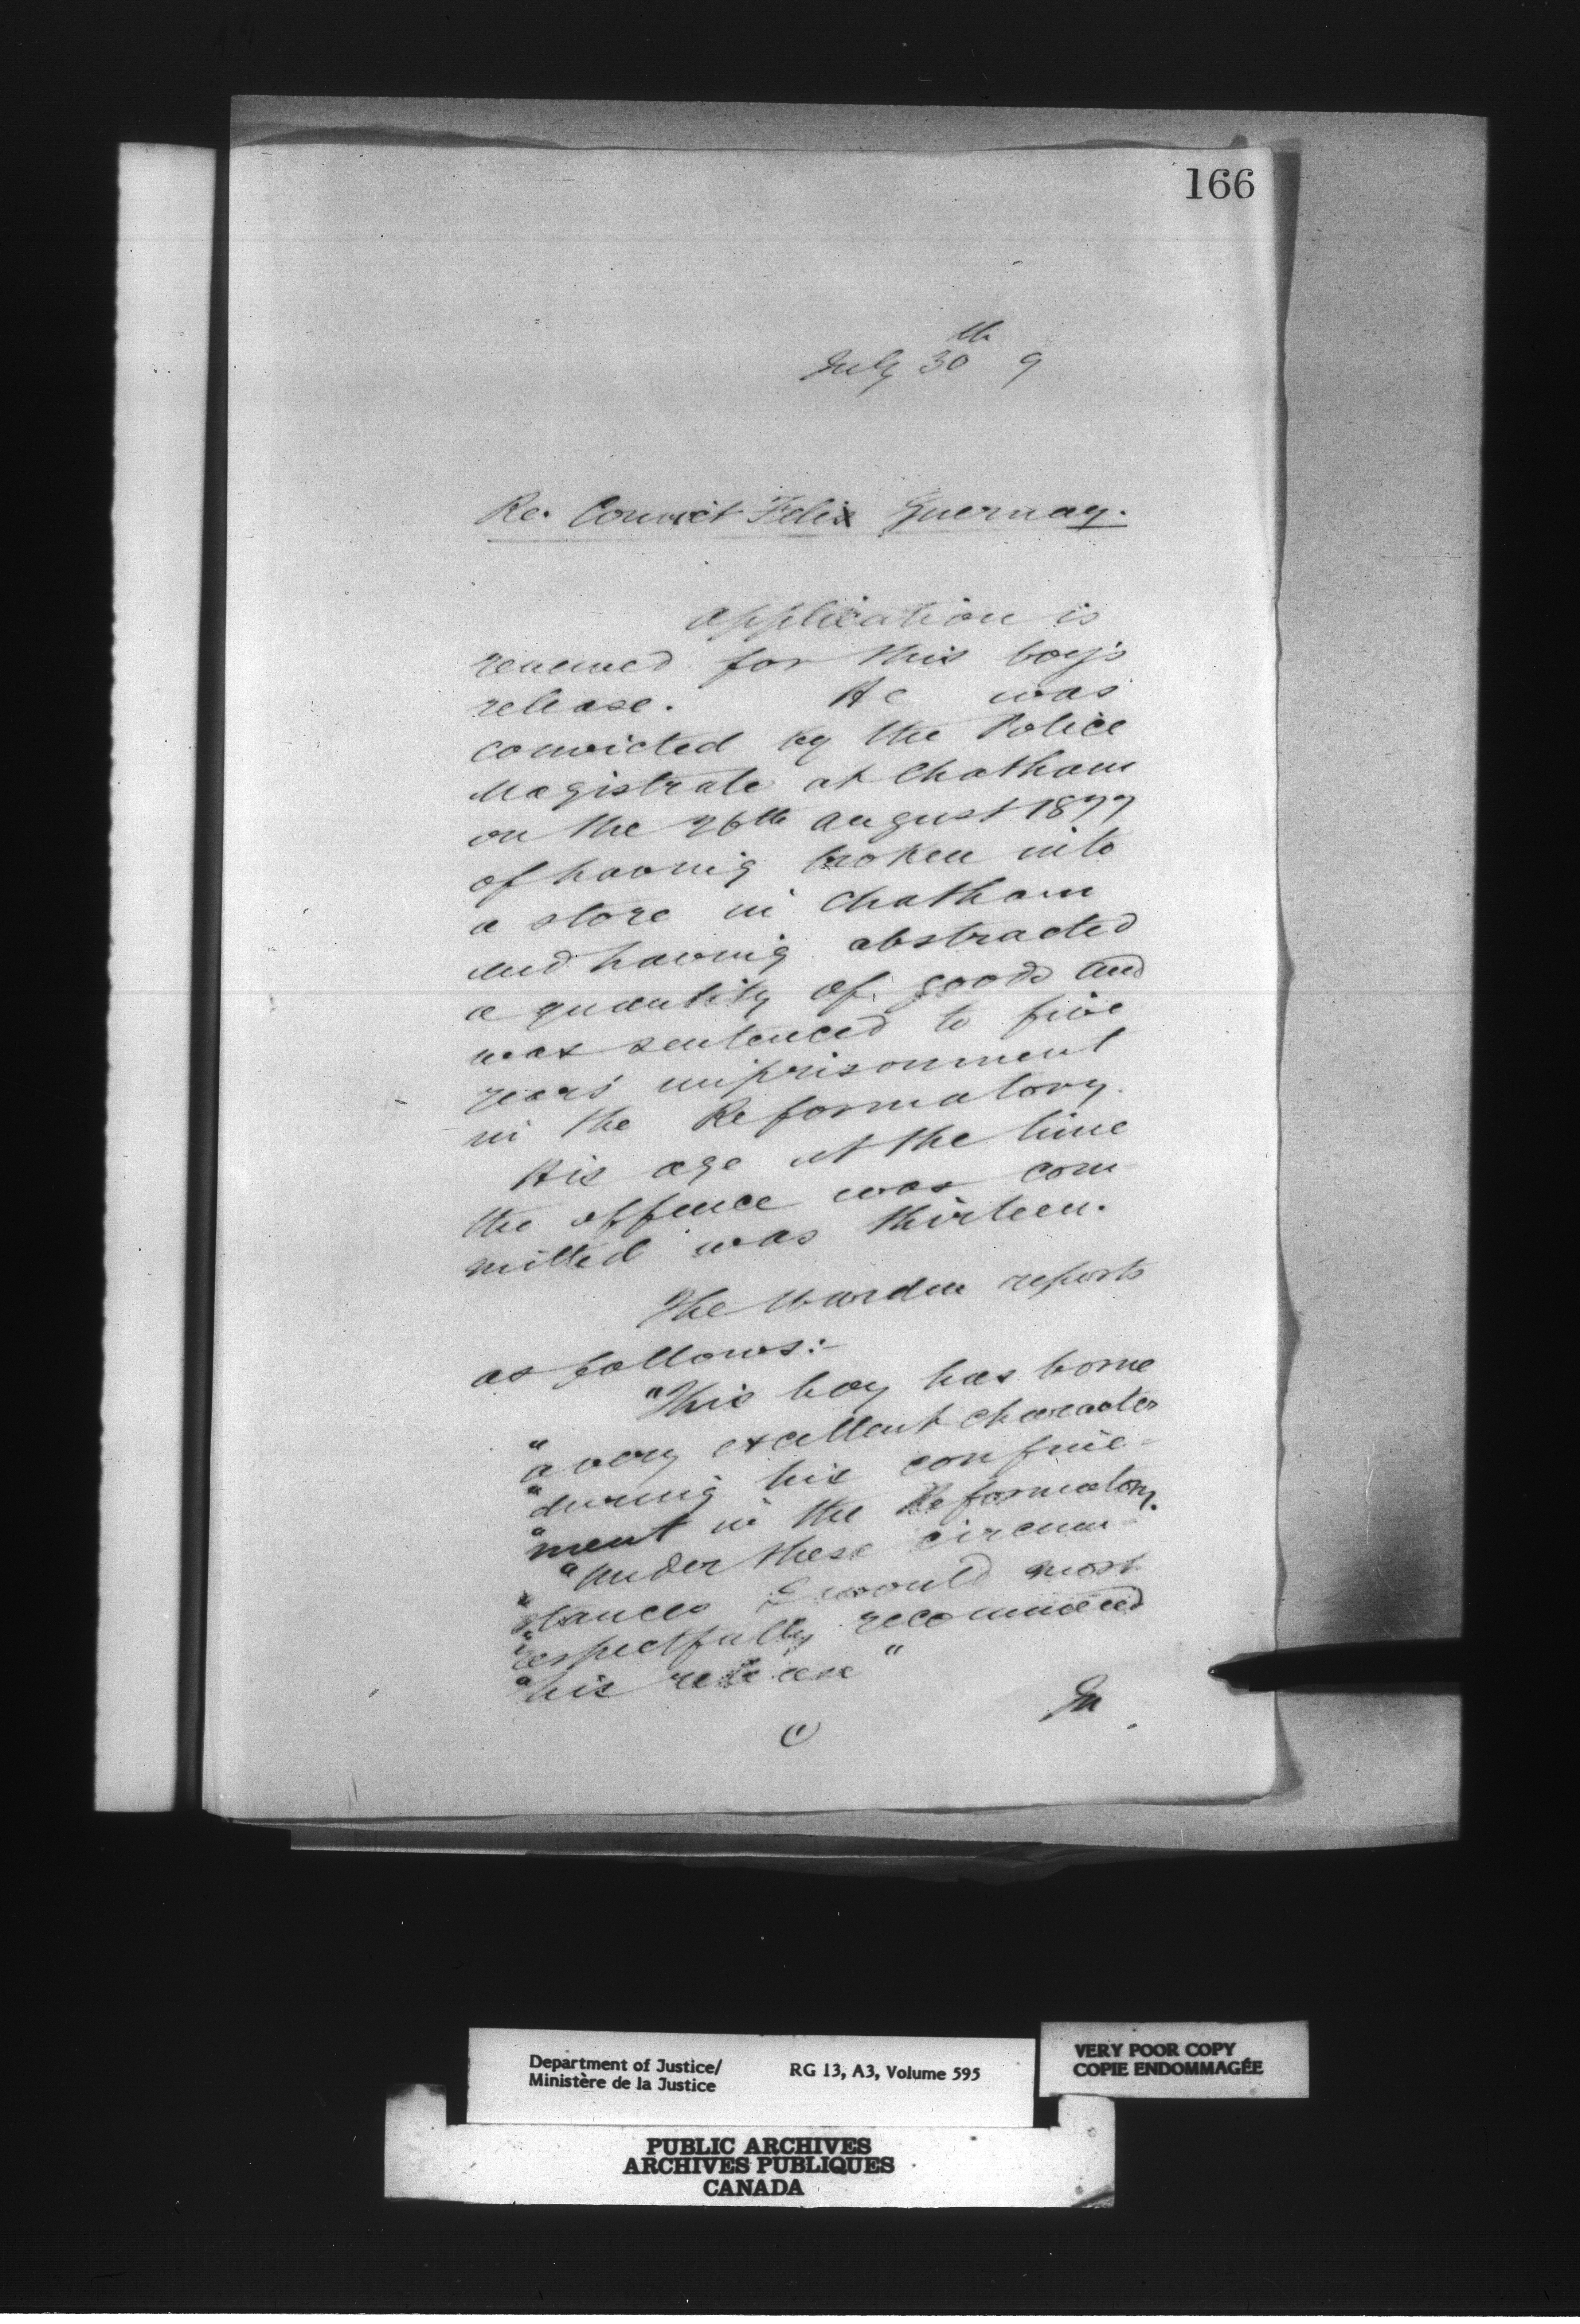 166
July 30th 9
Re. Convict Felix Guernay.
Application is
renewed for this boy's
release. He was
convicted by the Police
Magistrate at Chatham
on the 26th August 1877
of having broken into
a store in Chatham
and having abstracted
a quantity of goods and
was sentenced to five
years imprisonment
in the Reformatory.
His age at the time
the offence was com-
mitted was thirteen.
The Warden reports
as follows:-
"This boy has borne
"a very excellent character
"during his confine-
"ment in the Reformatory.
"Under these circum-
"stances I would most
"respectfully recommend
"his release"
In
Department of Justice/
Ministère de la Justice
RG 13, A3, Volume 595
VERY POOR COPY
COPIE ENDOMMAGÉE
PUBLIC ARCHIVES
ARCHIVES PUBLIQUES
CANADA